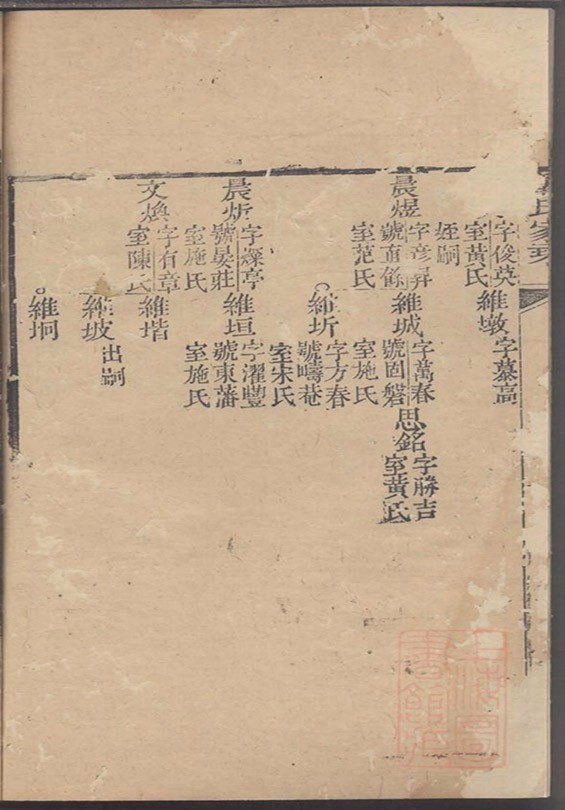 氏家乘
字俊英
室黃氏
維墩
字慕高
姪嗣
晨煜
字彥昇
號直餘
室范氏
維城
字萬春
號固磐
室施氏
思銘
字勝吉
室黃氏
維圻
字方春
號疇菴
室宋氏
晨炘
字燦亭
號晏莊
室施氏
維垣
字濯豐
號東藩
室施氏
文煥
字有章
室陳氏
維堦
維坡
出嗣
維坰